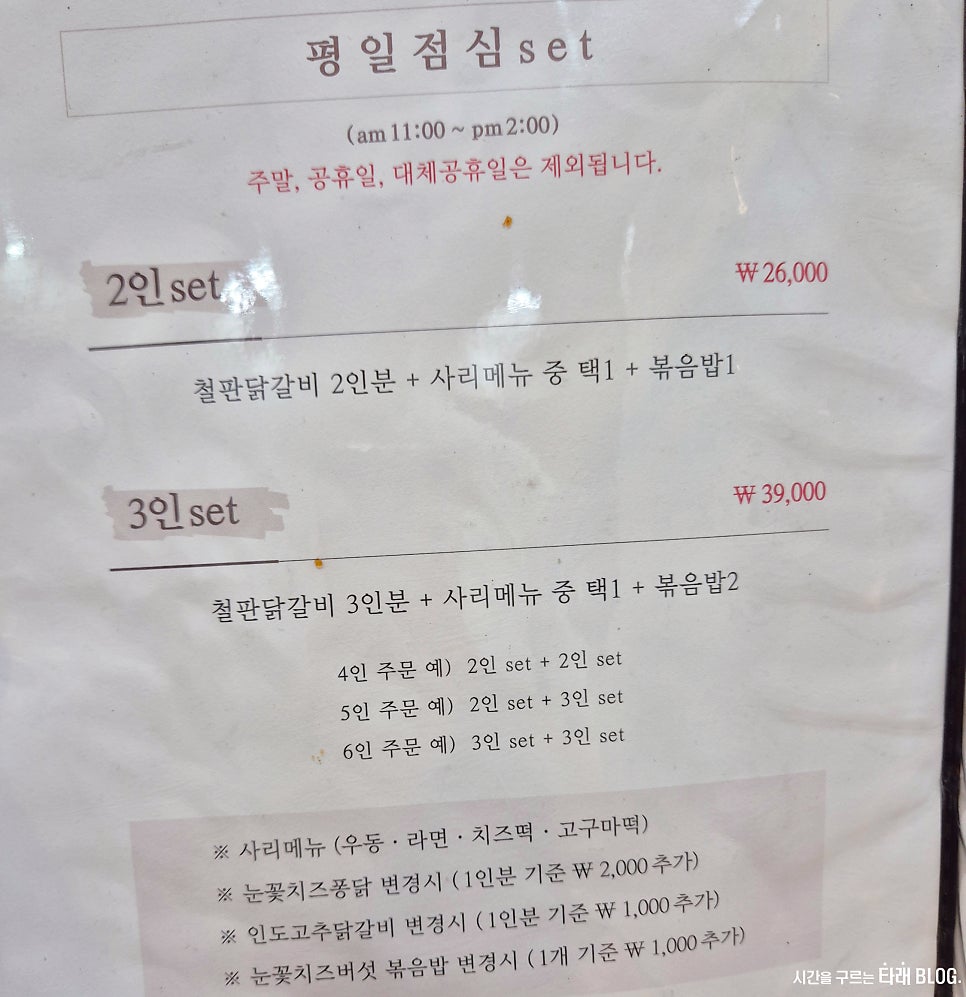 평일점심set
(am 11:00 ~ pm 2:00)
주말, 공휴일, 대체공휴일은 제외됩니다.
2인 set
₩ 26,000
철판닭갈비 2인분 + 사리메뉴 중 택1 + 볶음밥1
3인 set
₩ 39,000
철판닭갈비 3인분 + 사리메뉴 중 택1 + 볶음밥2
4인 주문 예) 2인 set + 2인 set
5인 주문 예) 2인 set + 3인 set
6인 주문 예) 3인 set + 3인 set
※ 사리메뉴 (우동 · 라면 · 치즈떡 · 고구마떡)
※ 눈꽃치즈퐁닭 변경시 (1인분 기준 ₩ 2,000 추가)
※ 인도고추닭갈비 변경시 (1인분 기준 ₩ 1,000 추가)
※ 눈꽃치즈버섯 볶음밥 변경시 (1개 기준 ₩ 1,000 추가)
시간을 구르는 타래 BLOG.